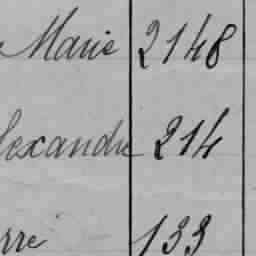 Marie 2148
lexandre 214
rre 133